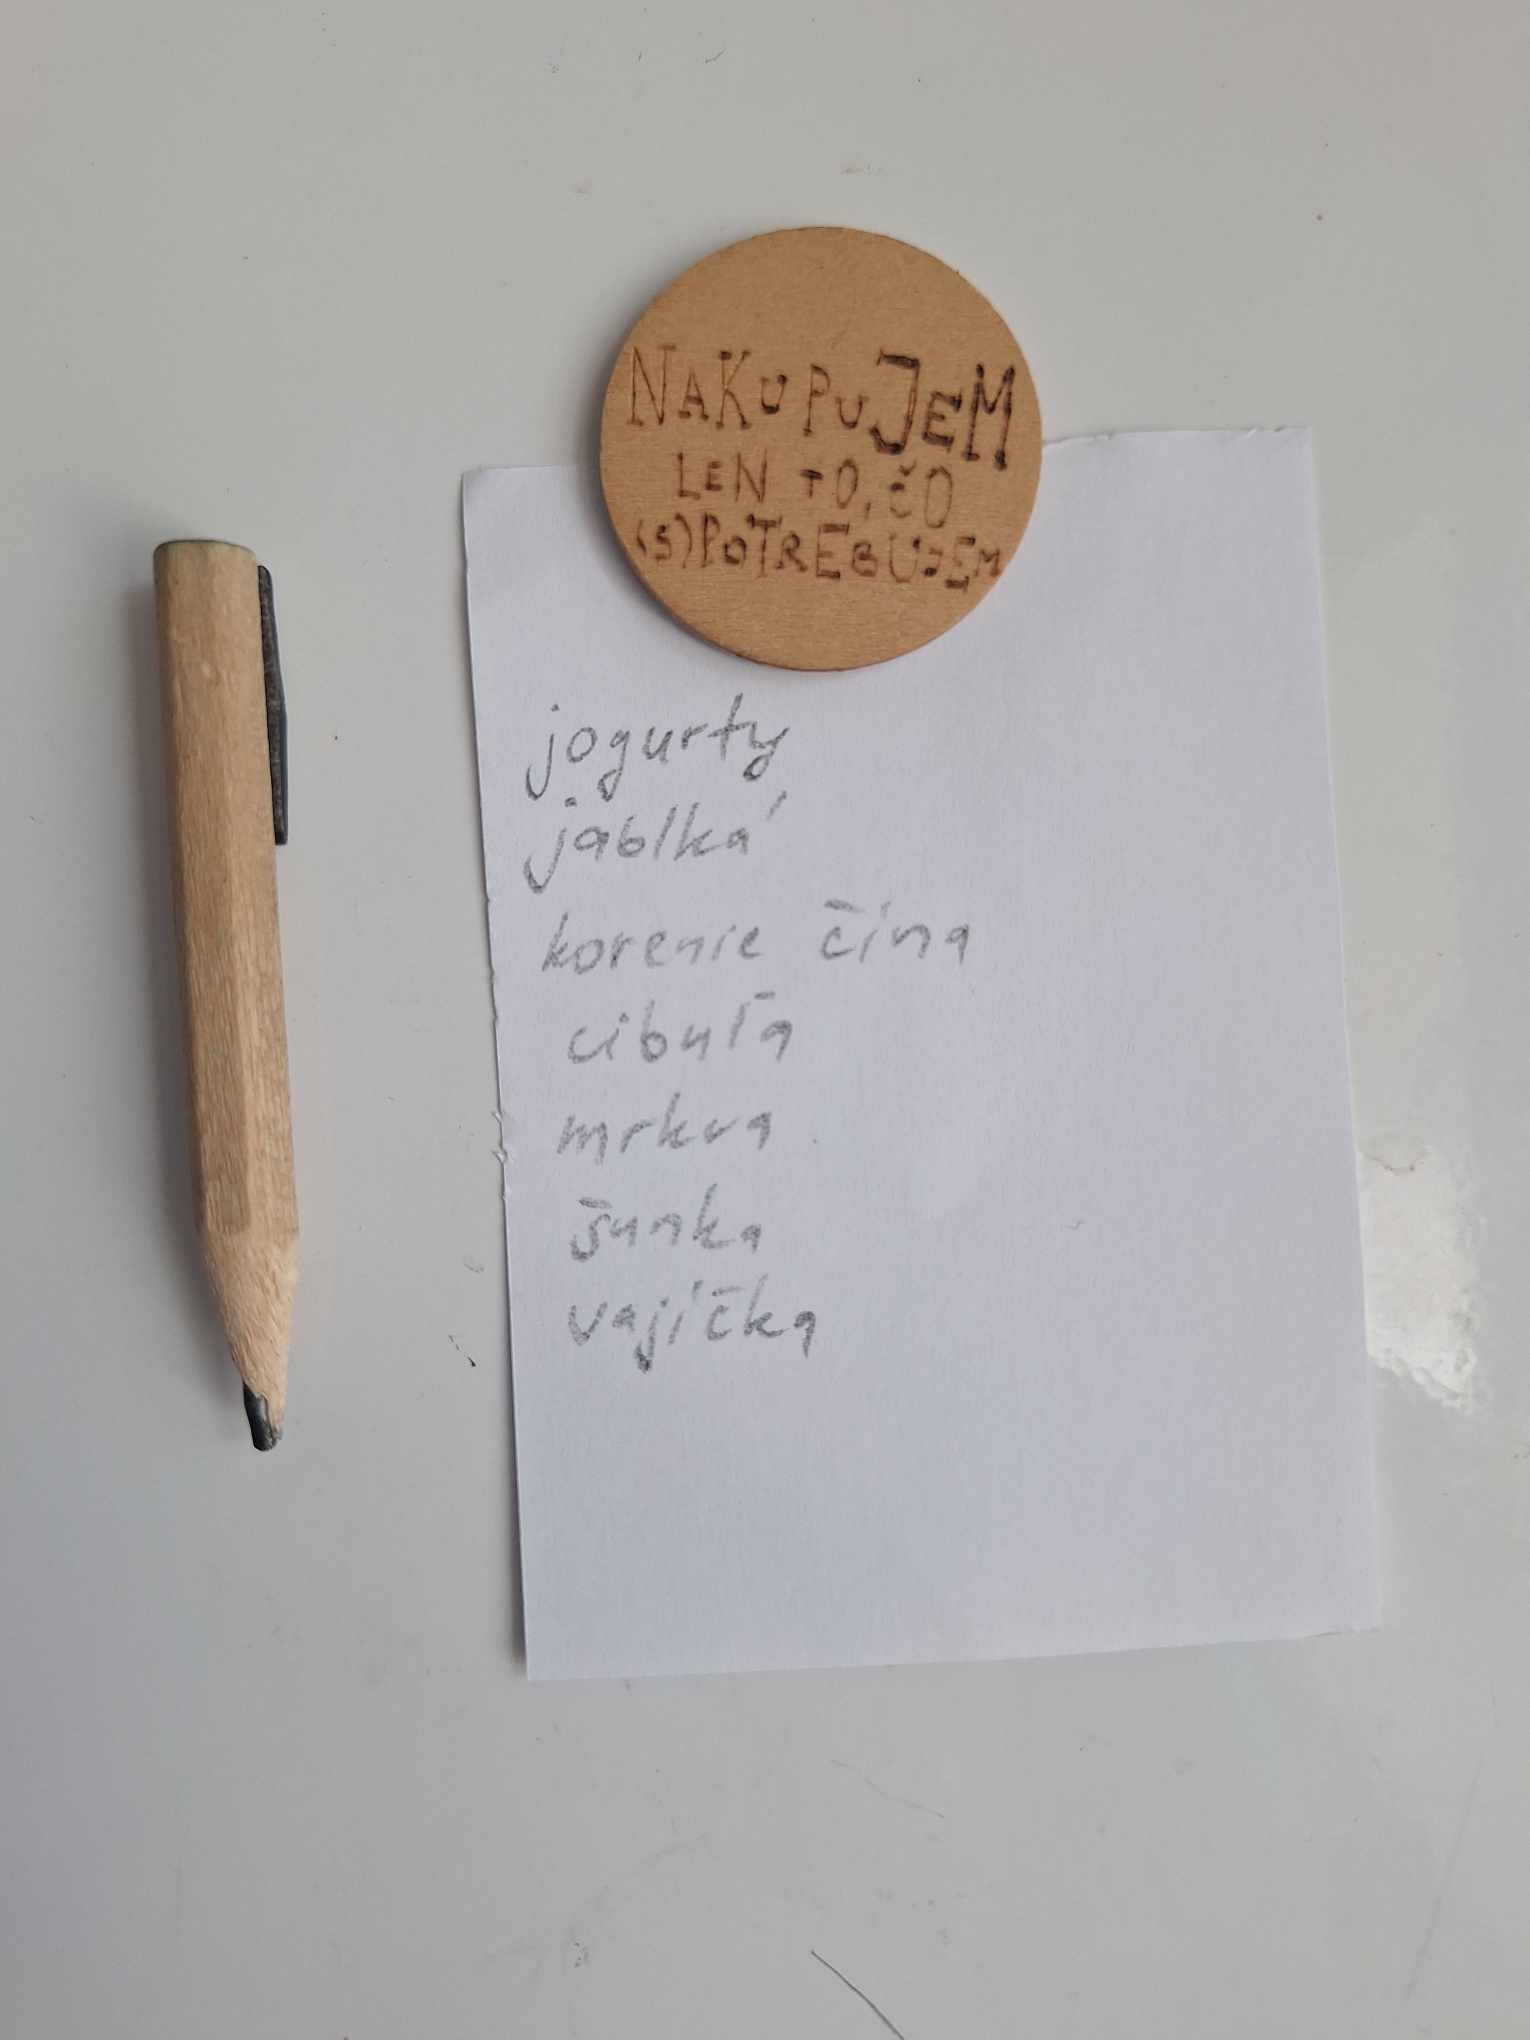 NAKUPUJEM
LEN TO, ČO
(S)POTREBUJEM
jogurty
jablká
korenie čína
cibuľa
mrkva
šunka
vajíčka